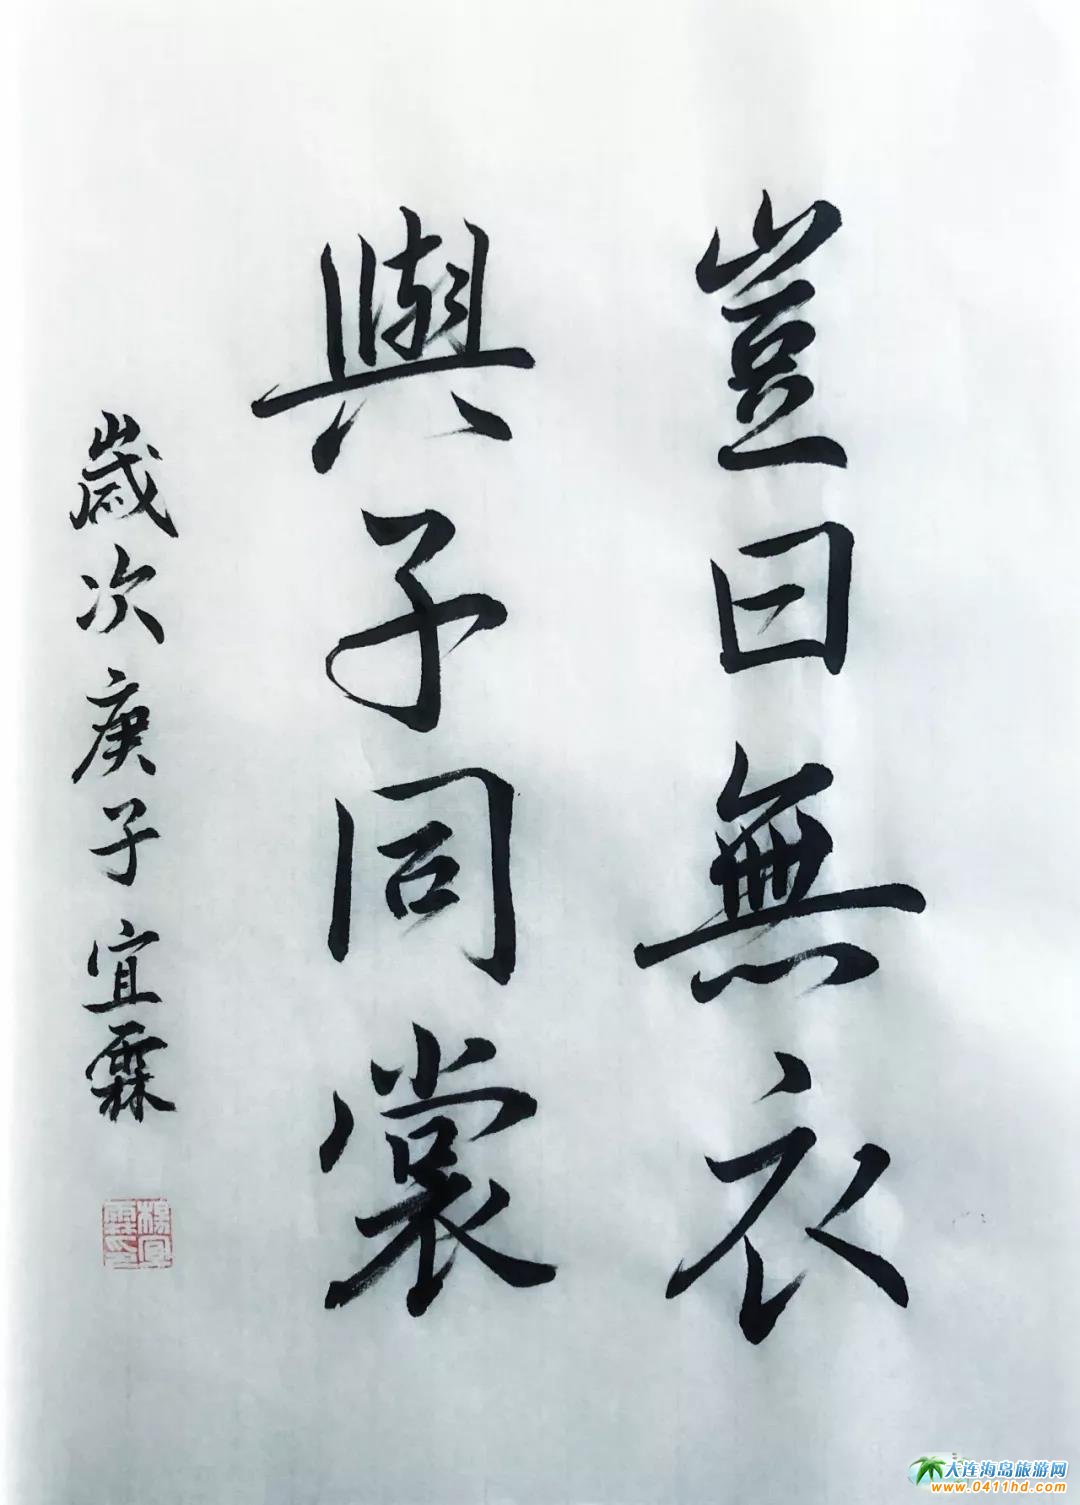 豈曰無衣
與子同裳
歲次庚子宜霖
楊宜霖印
大连海岛旅游网
www.0411hd.com